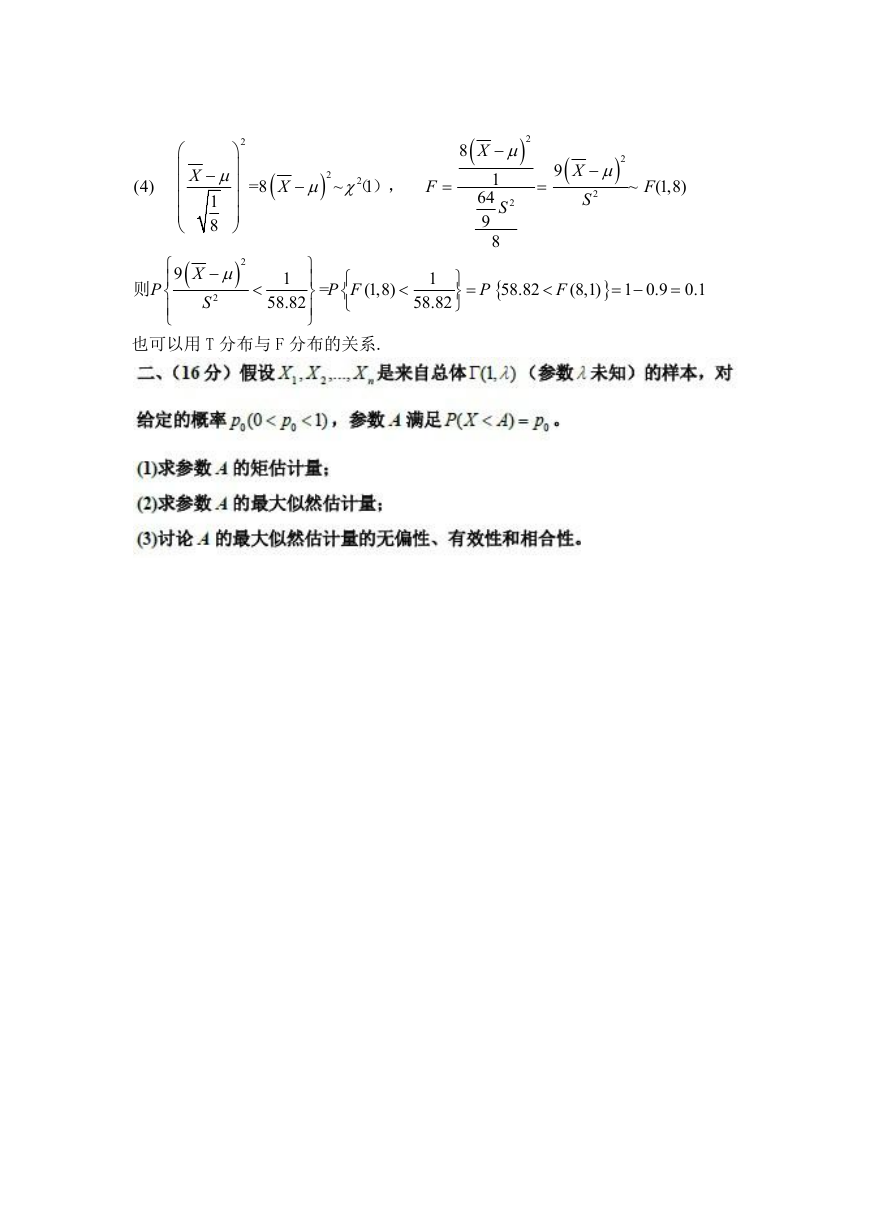 (4) \left(\frac{\overline{X}-\mu}{\sqrt{\frac{1}{8}}}\right)^2=8\left(\overline{X}-\mu\right)^2\sim\chi^2(1）， F=\frac{\frac{8\left(\overline{X}-\mu\right)^2}{1}}{\frac{\frac{64}{9}S^2}{8}}=\frac{9\left(\overline{X}-\mu\right)^2}{S^2}\sim F(1,8)
则P\left\{\frac{9\left(\overline{X}-\mu\right)^2}{S^2}<\frac{1}{58.82}\right\}=P\left\{F(1,8)<\frac{1}{58.82}\right\}=P\{58.82<F(8,1)\}=1-0.9=0.1
也可以用 T 分布与 F 分布的关系.
二、（16 分）假设 X₁,X₂,...,Xₙ 是来自总体 Γ(1,λ)（参数 λ 未知）的样本，对
给定的概率 p₀(0<p₀<1)，参数 A 满足 P(X<A)=p₀。
(1)求参数 A 的矩估计量；
(2)求参数 A 的最大似然估计量；
(3)讨论 A 的最大似然估计量的无偏性、有效性和相合性。